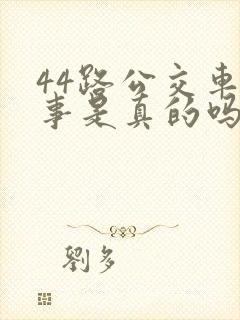 44路公交車
事是真的吗
劉多